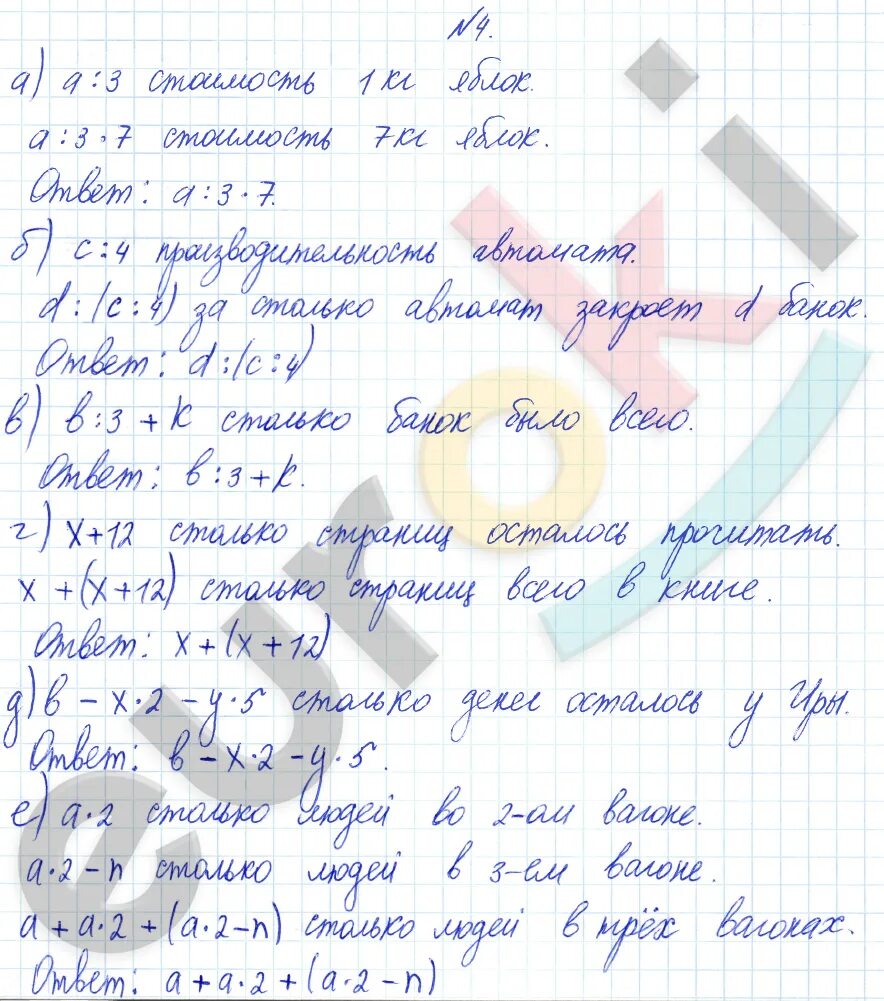 №4.
а) а:3 стоимость 1 кг яблок.
а:3·7 стоимость 7кг яблок.
Ответ: а:3·7.
б) с:4 производительность автомата.
d:(с:4) за столько автомат закроет d банок.
Ответ: d:(с:4)
в) в:3+К столько банок было всего.
Ответ: в:3+К.
г) х+12 столько страниц осталось прочитать.
х+(х+12) столько страниц всего в книге.
Ответ: х+(х+12)
д) в-х·2-у·5 столько денег осталось у Иры.
Ответ: в-х·2-у·5.
е) а·2 столько людей во 2-ом вагоне.
а·2-n столько людей в 3-ем вагоне.
а+а·2+(а·2-n) столько людей в трёх вагонах.
Ответ: а+а·2+(а·2-n)
euroki